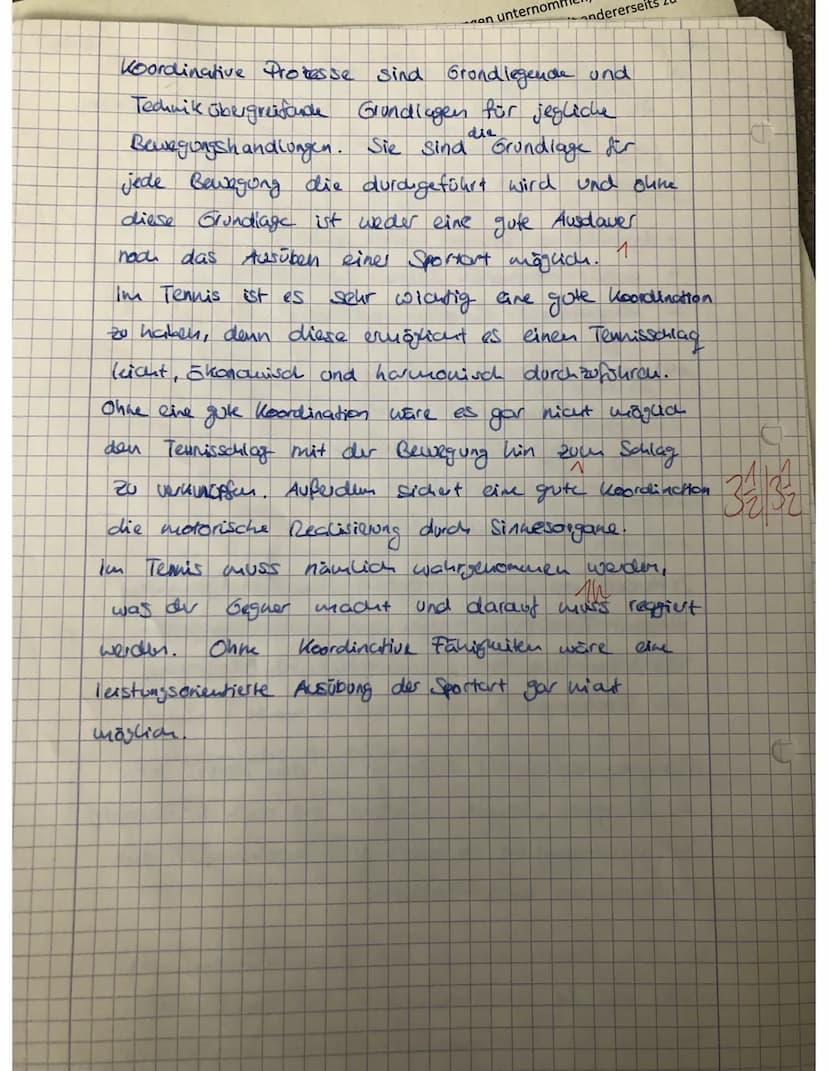 gen unternommen,
andererseits zu
Koordinative Prozesse sind Grundlegende und
Technikübergreifende Grundlagen für jegliche
Bewegungshandlungen. Sie sind die Grundlage für
jede Bewegung die durchgeführt wird und ohne
diese Grundlage ist weder eine gute Ausdauer
noch das Ausüben einer Sportart möglich. 1
Im Tennis ist es sehr wichtig eine gute Koordination
zu haben, denn diese ermöglicht es einen Tennisschlag
leicht, Ökonomisch und harmonisch durchzuführen.
Ohne eine gute Koordination wäre es gar nicht möglich
den Tennisschlag mit der Bewegung hin zum Schlag
zu verknüpfen. Außerdem sichert eine gute Koordination 3 1/2 | 3 1/2
die motorische Realisierung durch Sinnesorgane.
Im Tennis muss nämlich wahrgenommen werden,
was der Gegner macht und darauf muss reagiert
werden. Ohne Koordinative Fähigkeiten wäre eine
leistungsorientierte Ausübung der Sportart gar nicht
möglich.